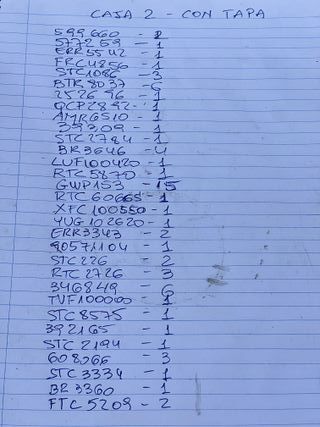 CAJA 2 - CON TAPA
599660 - 2
577259 - 1
ERR5542 - 1
FRC4856 - 1
STC1086 - 3
BTR8037 - 6
252696 - 1
QCP2892 - 1
AMR6510 - 1
39309 - 1
STC2784 - 1
BR3646 - 4
LUF100420 - 1
RTC5870 - 1
GWP153 - 15
RTC60665 - 1
XFC100550 - 1
YUG102620 - 1
ERR3343 - 2
90571104 - 1
STC226 - 2
RTC2726 - 3
346849 - 6
TVF100000 - 1
STC8575 - 1
392165 - 1
STC2194 - 1
608066 - 3
STC3334 - 1
BR3360 - 1
FTC5209 - 2